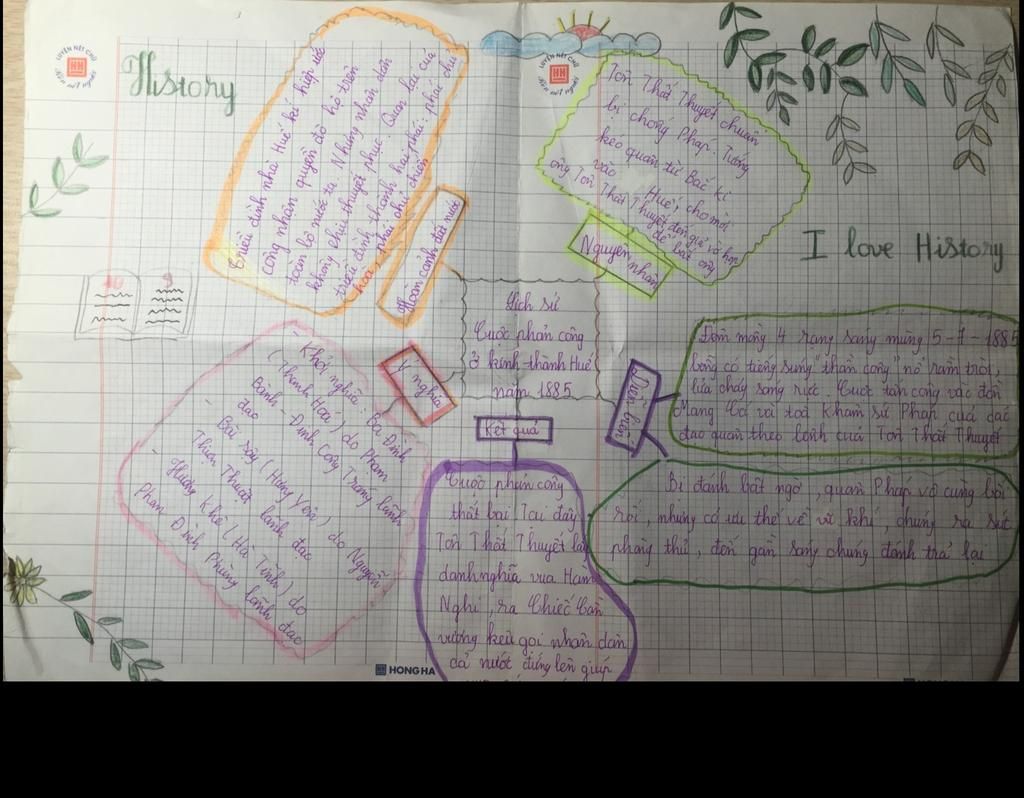 LUYỆN NÉT CHỮ
HH
Rèn nết người
History
Triều đình nhà Huế kí hiệp ước
công nhận quyền đô hộ trên
toàn bộ nước ta. Nhưng nhân dân
không chịu thuyết phục. Quan lại của
triều đình thành hai phái: phái chủ
hoà, phái chủ chiến
Hoàn cảnh đất nước
LUYỆN NÉT CHỮ
HH
Rèn nết người
Tôn Thất Thuyết chuẩn
bị chống Pháp. Tướng
kéo quân từ Bắc kì
vào Huế, cho mời
ông Tôn Thất Thuyết đến họp
để bắt ông
Nguyên nhân
I love History
10 9
Lịch sử
Cuộc phản công
ở kinh thành Huế
năm 1885
Ý nghĩa
- Khởi nghĩa: Ba Đình
(Thanh Hoá) do Phạm
Bành - Đinh Công Tráng lãnh
đạo
- Bãi Sậy (Hưng Yên) do Nguyễn
Thiện Thuật lãnh đạo
- Hương Khê (Hà Tĩnh) do
Phan Đình Phùng lãnh đạo
Kết quả
Cuộc phản công
thất bại Tại đây
Tôn Thất Thuyết lấy
danh nghĩa vua Hàm
Nghi, ra Chiếu Cần
vương kêu gọi nhân dân
cả nước đứng lên giúp
Diễn biến
Đêm mồng 4 rạng sáng mùng 5-7-1885
bỗng có tiếng súng "thần công" nổ rầm trời,
lửa cháy sáng rực. Cuộc tấn công vào đồn
Mang Cá và toà Khâm sứ Pháp của các
đạo quân theo lệnh của Tôn Thất Thuyết
Bị đánh bất ngờ, quân Pháp vô cùng bối
rối, nhưng có ưu thế về vũ khí, chúng ra sức
phòng thủ, đến gần sáng chúng đánh trả lại
HH HONG HA